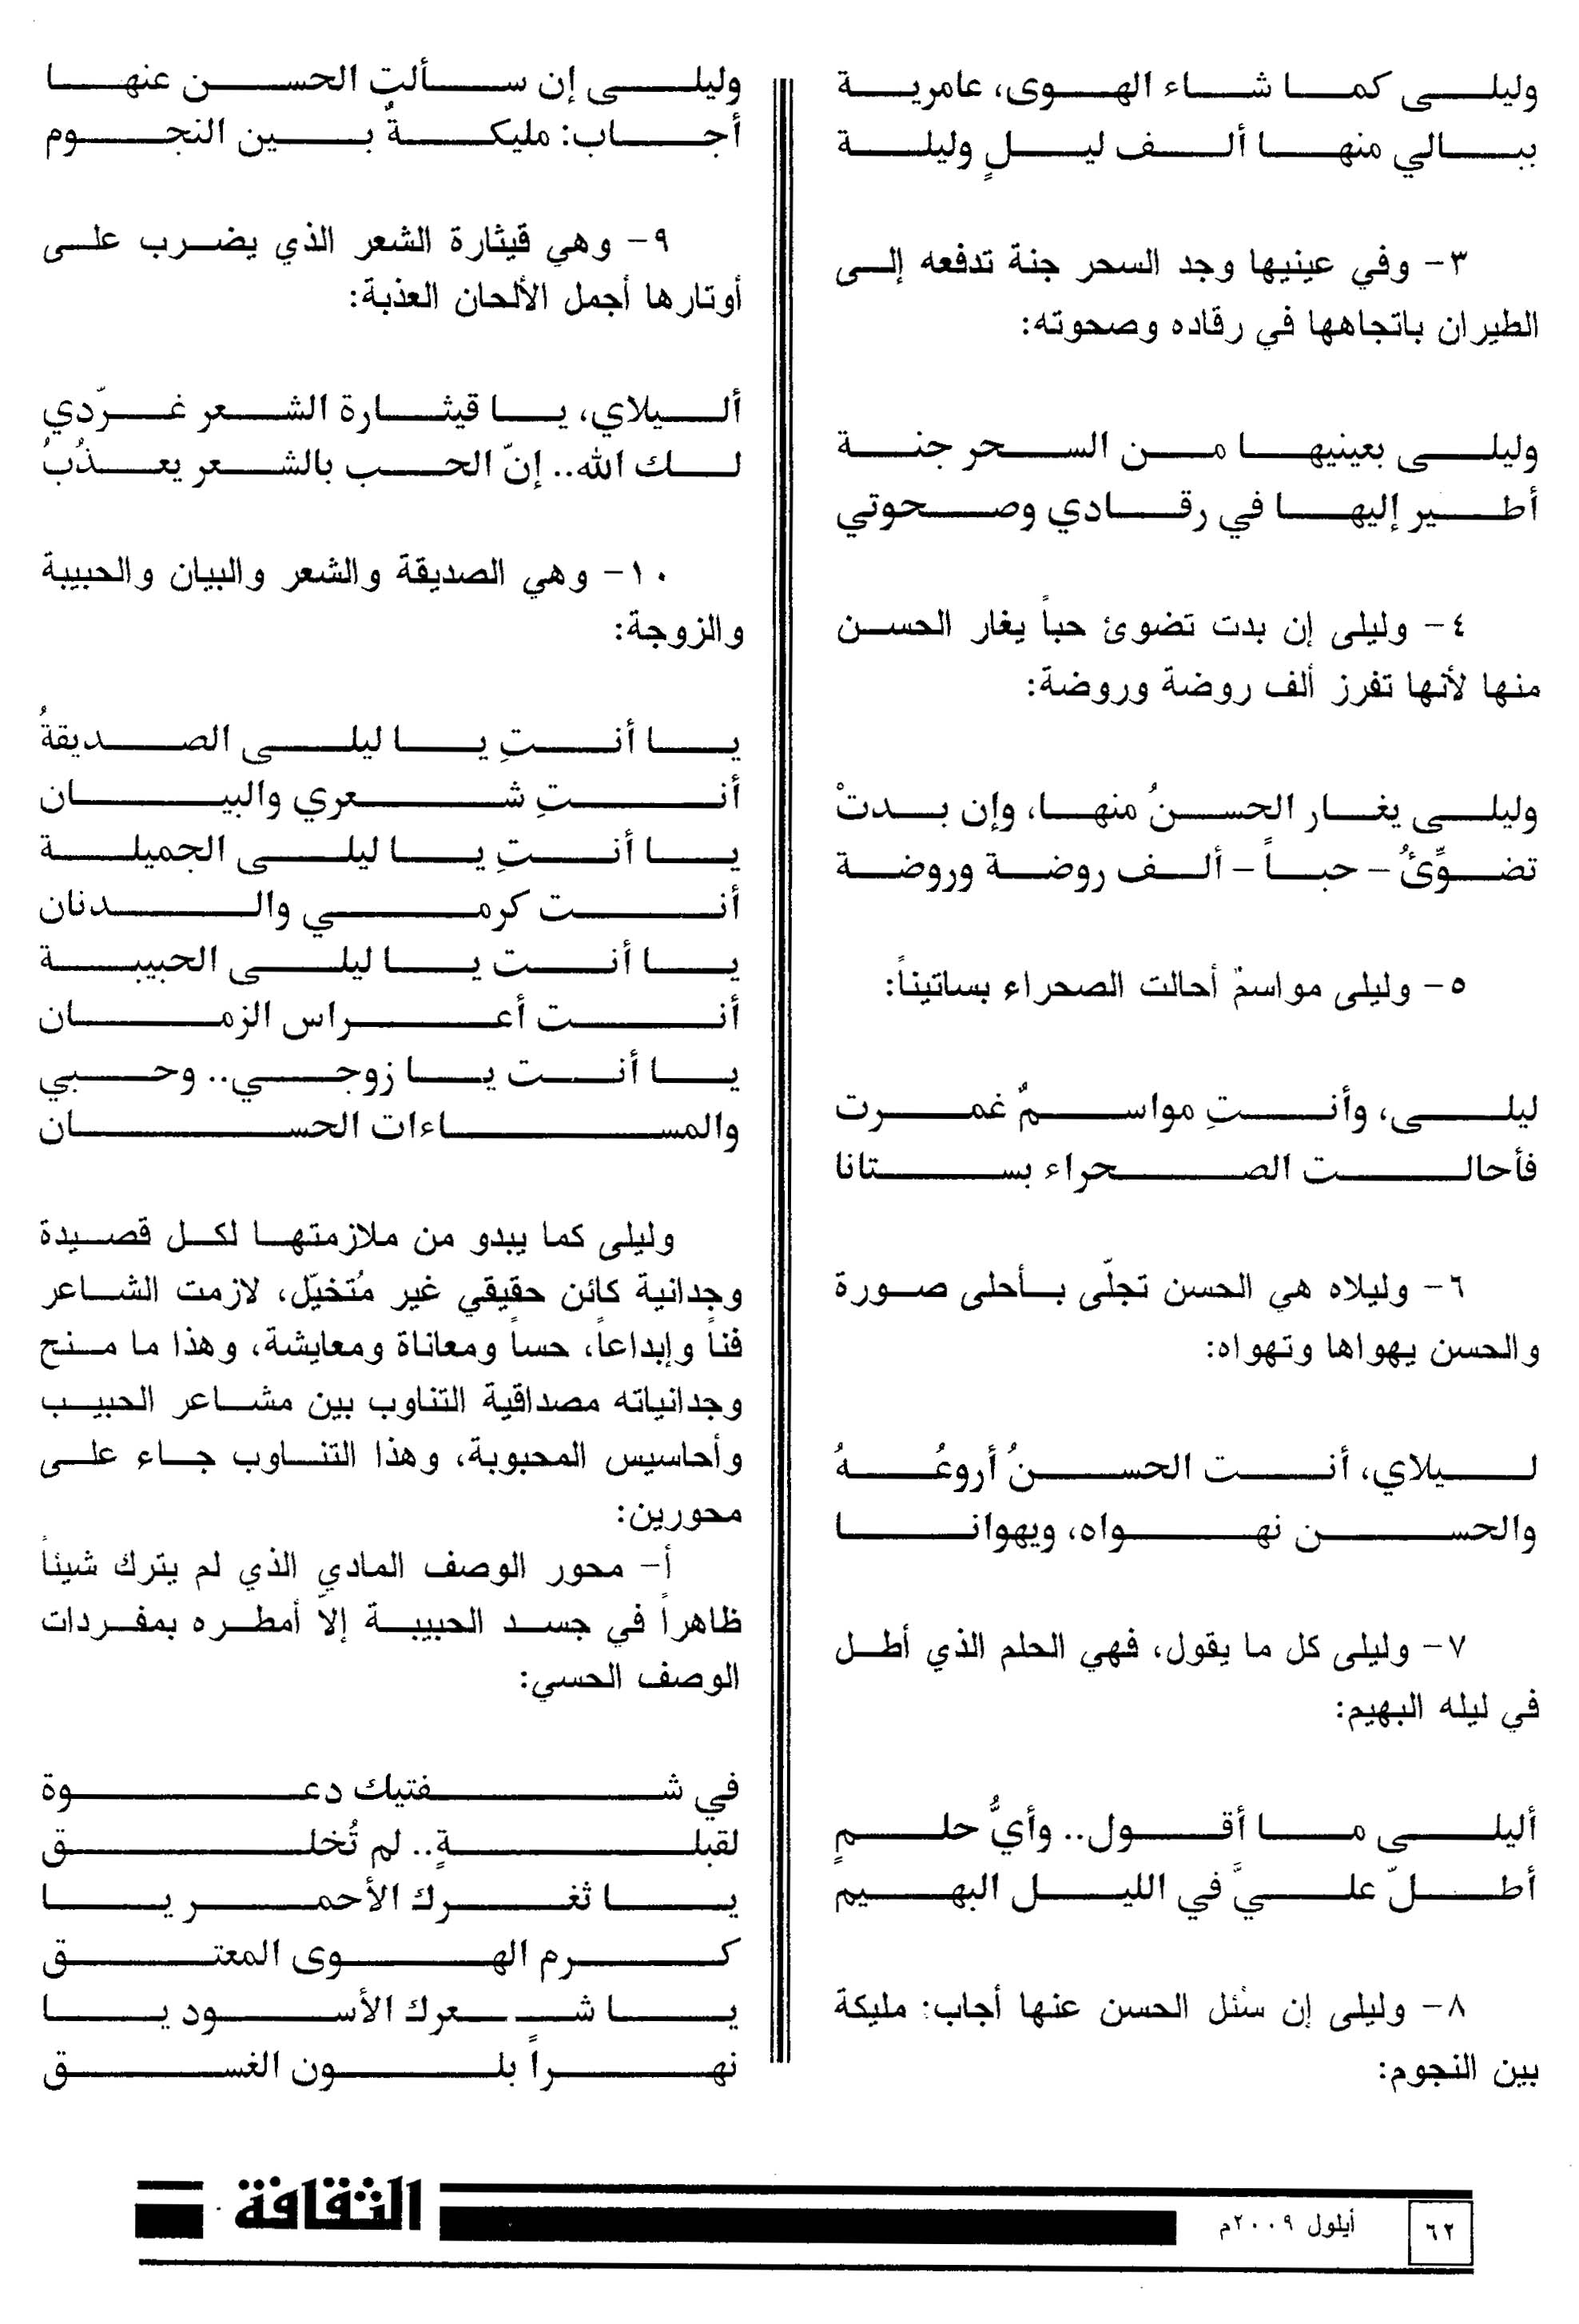 وليلى كما شاء الهوى، عامرية
ببالي منها ألف ليلٍ وليلة
٣- وفي عينيها وجد السحر جنة تدفعه إلى
الطيران باتجاهها في رقاده وصحوته:
وليلى بعينيها من السحر جنة
أطير إليها في رقادي وصحوتي
٤- وليلى إن بدت تضوئ حباً يغار الحسن
منها لأنها تفرز ألف روضة وروضة:
وليلى يغار الحسنُ منها، وإن بدتْ
تضوِّئُ - حباً - ألف روضة وروضة
٥- وليلى مواسمٌ أحالت الصحراء بساتيناً:
ليلى، وأنتِ مواسمٌ غمرت
فأحالت الصحراء بستانا
٦- وليلاه هي الحسن تجلّى بأحلى صورة
والحسن يهواها وتهواه:
ليلاي، أنت الحسنُ أروعُهُ
والحسن نهواه، ويهوانا
٧- وليلى كل ما يقول، فهي الحلم الذي أطل
في ليله البهيم:
أليلى ما أقول.. وأيُّ حلمٍ
أطلّ عليَّ في الليل البهيم
٨- وليلى إن سُئل الحسن عنها أجاب: مليكة
بين النجوم:
وليلى إن سألت الحسن عنها
أجاب: مليكةٌ بين النجوم
٩- وهي قيثارة الشعر الذي يضرب على
أوتارها أجمل الألحان العذبة:
أليلاي، يا قيثارة الشعر غرّدي
لك الله.. إنّ الحب بالشعر يعذُبُ
١٠- وهي الصديقة والشعر والبيان والحبيبة
والزوجة:
يا أنتِ يا ليلى الصديقةُ
أنتِ شعري والبيان
يا أنتِ يا ليلى الجميلة
أنت كرمي والدنان
يا أنت يا ليلى الحبيبة
أنت أعراس الزمان
يا أنت يا زوجي.. وحبي
والمساءات الحسان
وليلى كما يبدو من ملازمتها لكل قصيدة
وجدانية كائن حقيقي غير مُتخيّل، لازمت الشاعر
فناً وإبداعاً، حساً ومعاناة ومعايشة، وهذا ما منح
وجدانياته مصداقية التناوب بين مشاعر الحبيب
وأحاسيس المحبوبة، وهذا التناوب جاء على
محورين:
أ- محور الوصف المادي الذي لم يترك شيئاً
ظاهراً في جسد الحبيبة إلاّ أمطره بمفردات
الوصف الحسي:
في شفتيك دعوة
لقبلةٍ.. لم تُخلق
يا ثغرك الأحمر يا
كرم الهوى المعتق
يا شعرك الأسود يا
نهراً بلون الغسق
٦٢
أيلول ٢٠٠٩م
الثقافة